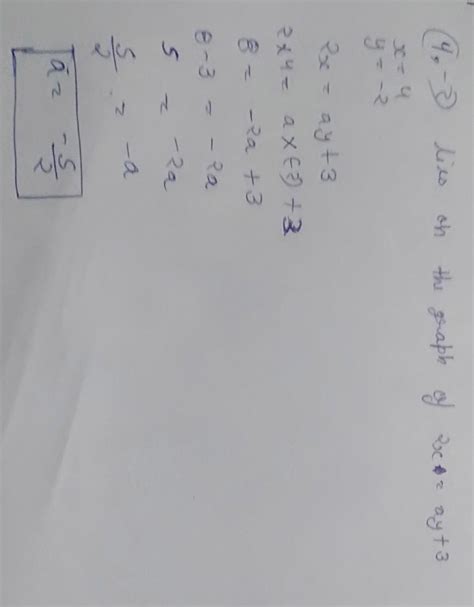 (4, -2) lies on the graph of 2x = ay+3
x = 4
y = -2
2x = ay+3
2x4 = ax(-2)+3
8 = -2a+3
8-3 = -2a
5 = -2a
5/2 = -a
a = -5/2